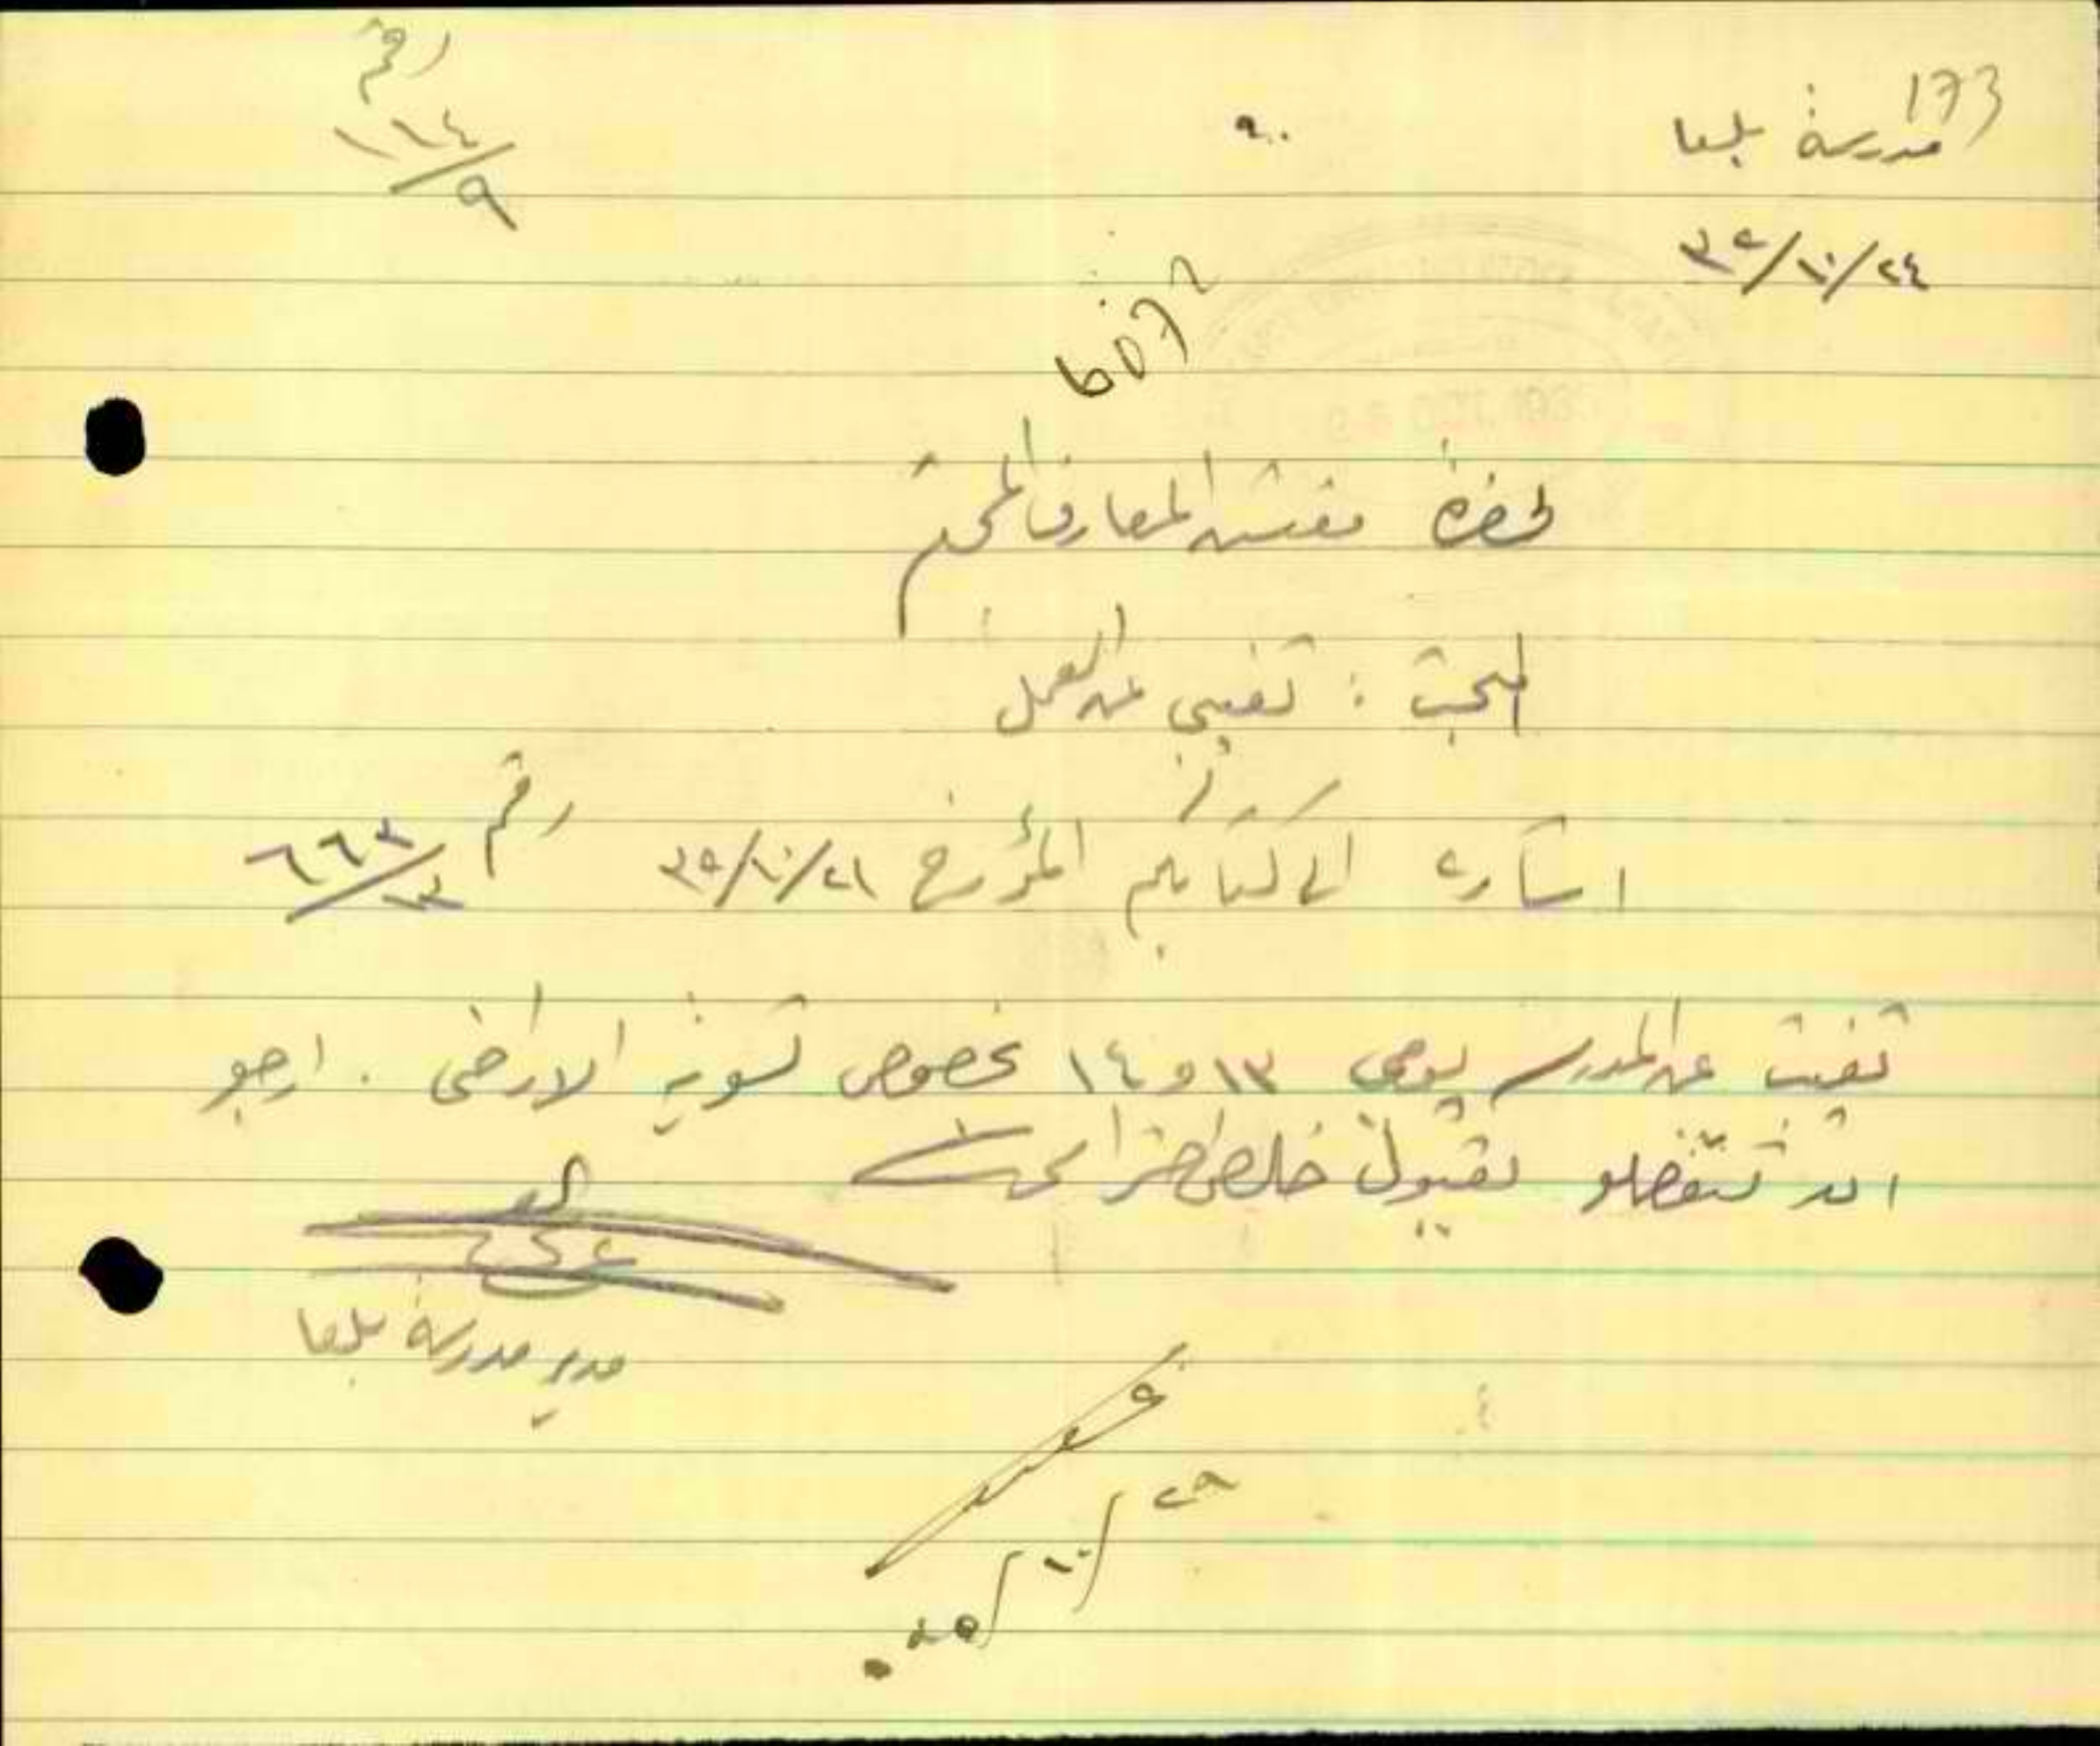 173
مدرسة بلعا
رقم
١١٤/٩
٣٥/١٠/٢٤
لحضرة مفتش المعارف المحترم
المبحث : تغيبي عن العمل
سيدي
اشارة الى كتابكم المؤرخ ٣٥/١٠/٢١ رقم ٦٦٣/١٣
تغيبت عن المدرسة يومي ١٣ و ١٤ بخصوص تسوية الاراضي . ارجو
ان تتفضلو بقبول خالص احترامي
مدير مدرسة بلعا
٣٥/١٠/٢٩